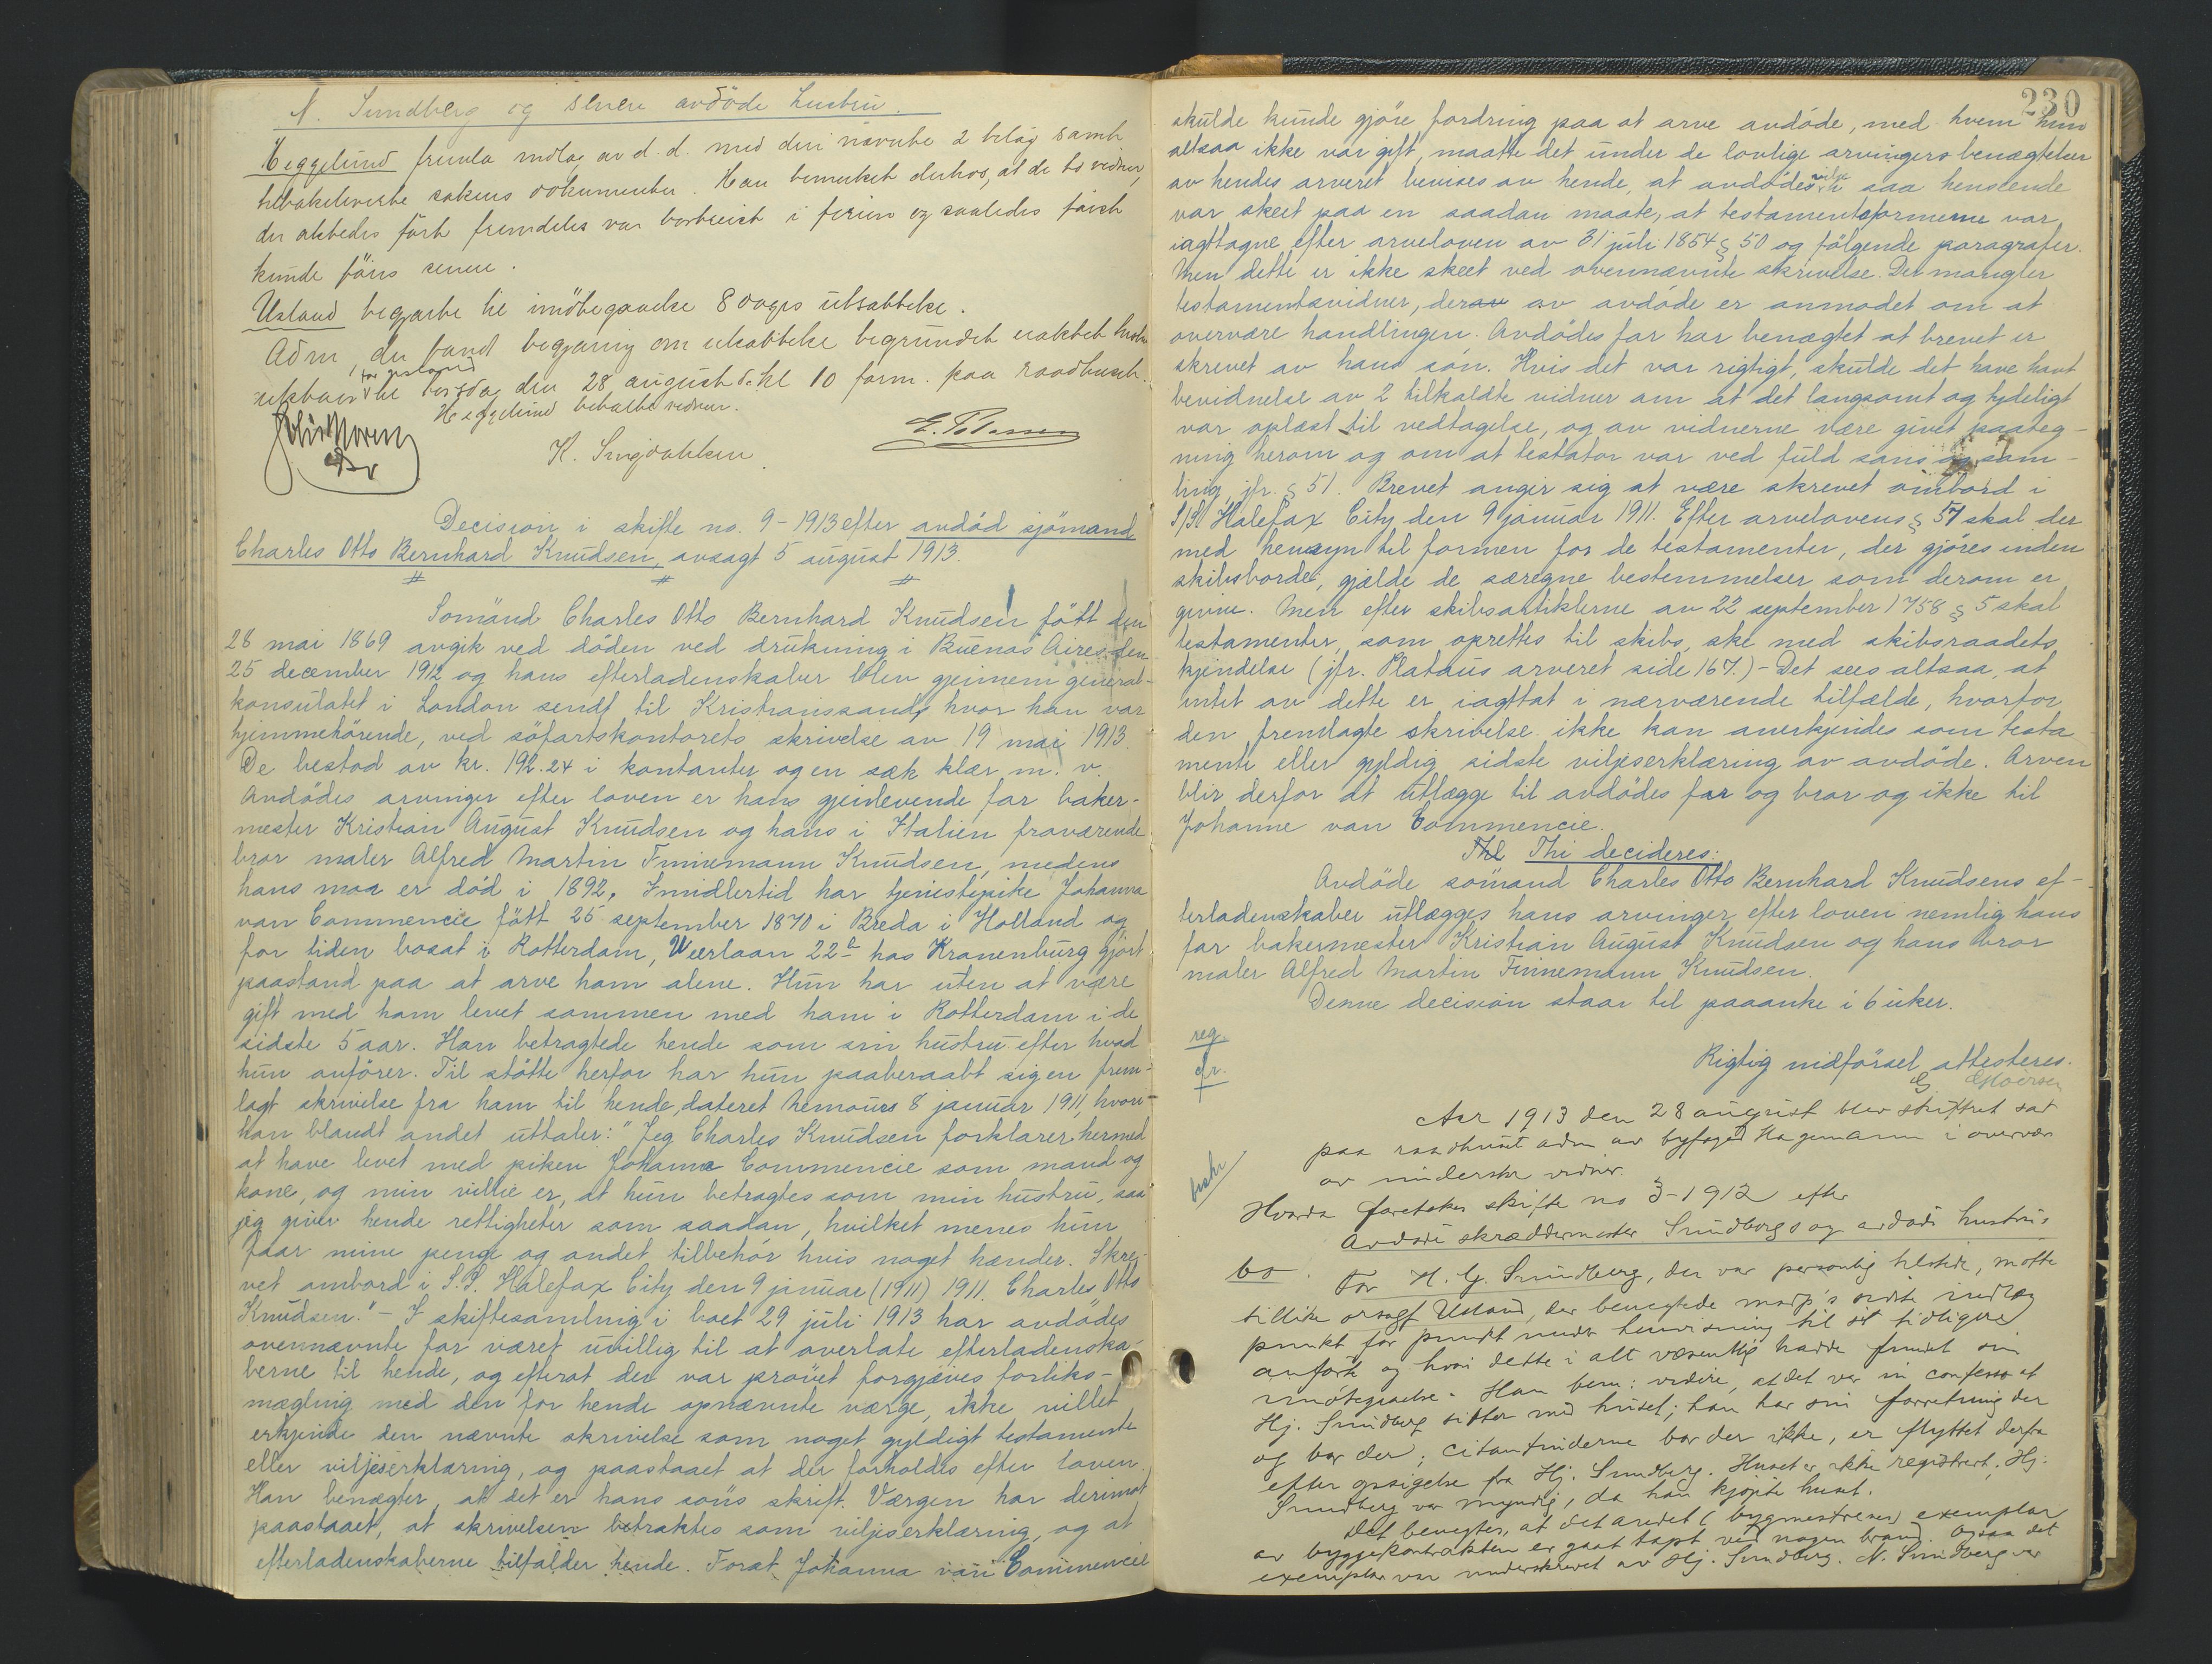 N. Sundberg og senere avdöde hustru.
Heggelund fremla indlæg av d. d. med deri nævnte 2 bilag samt
tilbakeleverte sakens dokumenter. Han bemerket derhos, at de to vidner,
der aktedes fört fremdeles var bortreist i ferien og saaledes först
kunde föres senere.
Usland begjærte til imötegaaelse 8 dages utsættelse.
Adm, der fand begjæring om utsættelse begrundet
utsatte til torsdag den 28 august d. kl 10 form. paa raadhuset.
Heggelund beholdt vidner.
K. Singdahlsen
Decision i skifte no. 9-1913 efter avdöd sjömand
Charles Otto Bernhard Knudsen, avsagt 5 august 1913.
Sömand Charles Otto Bernhard Knudsen född den
28 mai 1869 avgik ved döden ved drukning i Buenos Aires den
25 december 1912 og hans efterladenskaber blev gjennem general-
konsulatet i London sendt til Kristianssand, hvor han var
hjemmehörende, ved söfartskontorets skrivelse av 19 mai 1913.
De bestod av kr. 192.24 i kontanter og en sæk klær m. v.
Avdödes arvinger efter loven er hans gjenlevende far baker-
mester Kristian August Knudsen og hans i Italien fraværende
bror maler Alfred Martin Finnemann Knudsen, medens
hans moa er död i 1892. Imidlertid har tjenestepike Johanna
van Commencie född 25 september 1870 i Breda i Holland og
for tiden bosat i Rotterdam, Weerlaan 22 hos Kranenburg gjort
paastand paa at arve ham alene. Hun har uten at være
gift med ham levet sammen med ham i Rotterdam i de
sidste 5 aar. Han betragtede hende som sin hustru efter hvad
hun anförer. Til stötte herfor har hun paaberaabt sig en frem-
lagt skrivelse fra ham til hende, dateret Nemours 8 januar 1911, hvori
han blandt andet uttaler: "Jeg Charles Knudsen forklarer hermed
at have levet med piken Johanna Commencie som mand og
kone, og min villie er, at hun betragtes som min hustru, saa
jeg giver hende rettigheter som saadan, hvilket menes hun
faar mine penge og andet tilbehör hvis noget hænder. Skre-
vet ombord i S.S. Halefax City den 9 januar (1911) 1911. Charles Otto
Knudsen." - I skiftesamling i boet 29 juli 1913 har avdödes
ovennævnte far været uvillig til at overlate efterladenska-
berne til hende, og efterat der var prövet forgjæves forliks-
mægling med den for hende opnævnte værge, ikke villet
erkjende den nævnte skrivelse som noget gyldigt testamente
eller viljeserklæring, og paastaaet at der forholdes efter loven.
Han benægter, at det er hans söns skrift. Værgen har derimot
paastaaet, at skrivelsen betraktes som viljeserklæring, og at
efterladenskaberne tilfalder hende. Forat Johanna van Commencie
230
skulde kunde gjöre fordring paa at arve avdöde, med hvem hun
altsaa ikke var gift, maatte det under de lovlige arvingers benægtelser
av hendes arveret bevises av hende, at avdödes vilje i saa henseende
var skeet paa en saadan maate, at testamentsformerne var
iagttagne efter arveloven av 31 juli 1854 § 50 og fölgende paragrafer.
Men dette er ikke skeet ved ovennævnte skrivelse. Der mangler
testamentsvidner, derav av avdöde er anmodet om at
overvære handlingen. Avdödes far har benægtet at brevet er
skrevet av hans sön. Hvis det var rigtigt, skulde det have havt
bevidnelse av 2 tilkaldte vidner om at det langsomt og tydeligt
var oplæst til vedtagelse, og av vidnerne være givet paateg-
ning herom og om at testator var ved fuld sans og sam-
ling, jfr. § 51. Brevet angir sig at være skrevet ombord i
S/S Halefax City den 9 januar 1911. Efter arvelovens § 57 skal der
med hensyn til formen for de testamenter, der gjöres inden
skibsborde, gjælde de særegne bestemmelser som derom er
givne. Men efter skibsartiklerne av 22 september 1758 § 5 skal
testamenter, som oprettes til skibs, ske med skibsraadets
kjendelse (jfr. Plataus arveret side 167.) - Det sees altsaa, at
intet av dette er iagttat i nærværende tilfælde, hvorfor
den fremlagte skrivelse ikke kan anerkjendes som testa
mente eller gyldig sidste viljeserklæring av avdöde. Arven
blir derfor at utlægge til avdödes far og bror og ikke til
Johanne van Commencie.
Thi decideres:
Avdöde sömand Charles Otto Bernhard Knudsens ef-
terladenskaber utlægges hans arvinger efter loven nemlig hans
far bakermester Kristian August Knudsen og hans bror
maler Alfred Martin Finnemann Knudsen.
Denne decision staar til paaanke i 6 uker.
reg.
Rigtig indförsel attesteres.
Aar 1913 den 28 august blev skifteret sat
paa raadhuset adm av byfoged Hagemann i overvær
av underskr vidner.
Hvorda foretokes skifte no 3-1912 efter
Avdöde skræddermester Sundbergs og avdöde hustrus
bo.
For H. G. Sundberg, der var personlig tilstede, mötte
tillike orsagf Usland, der benegtede modp's sidste indlæg
punkt for punkt under henvisning til sit tidligere
anfört og hvori dette i alt væsentlig hadde fundet sin
imötegaaelse. Han bem: videre, at det var in confesso at
Hj. Sundberg sitter med huset; han har sin forretning der
og bor der; citantinderne bor der ikke, er flyttet derfra
efter opsigelse fra Hj. Sundberg. Huset er ikke registrert. Hj.
Sundberg var myndig, da han kjöpte huset.
Det benegtes, at det andet (bygmesterens) exemplar
av byggekontrakten er gaat tapt ved nogen brand. Ogsaa det
exemplar var underskrevet av Hj. Sundberg. N. Sundberg var